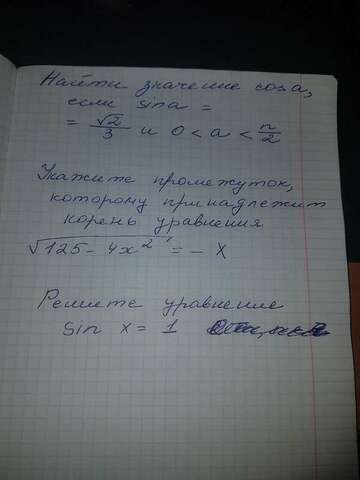 Найти значение cos a,
если sin a =
= √2/3 и 0 < a < π/2
Укажите промежуток,
которому принадлежит
корень уравнения
√125 - 4x² = - x
Решите уравнение
sin x = 1